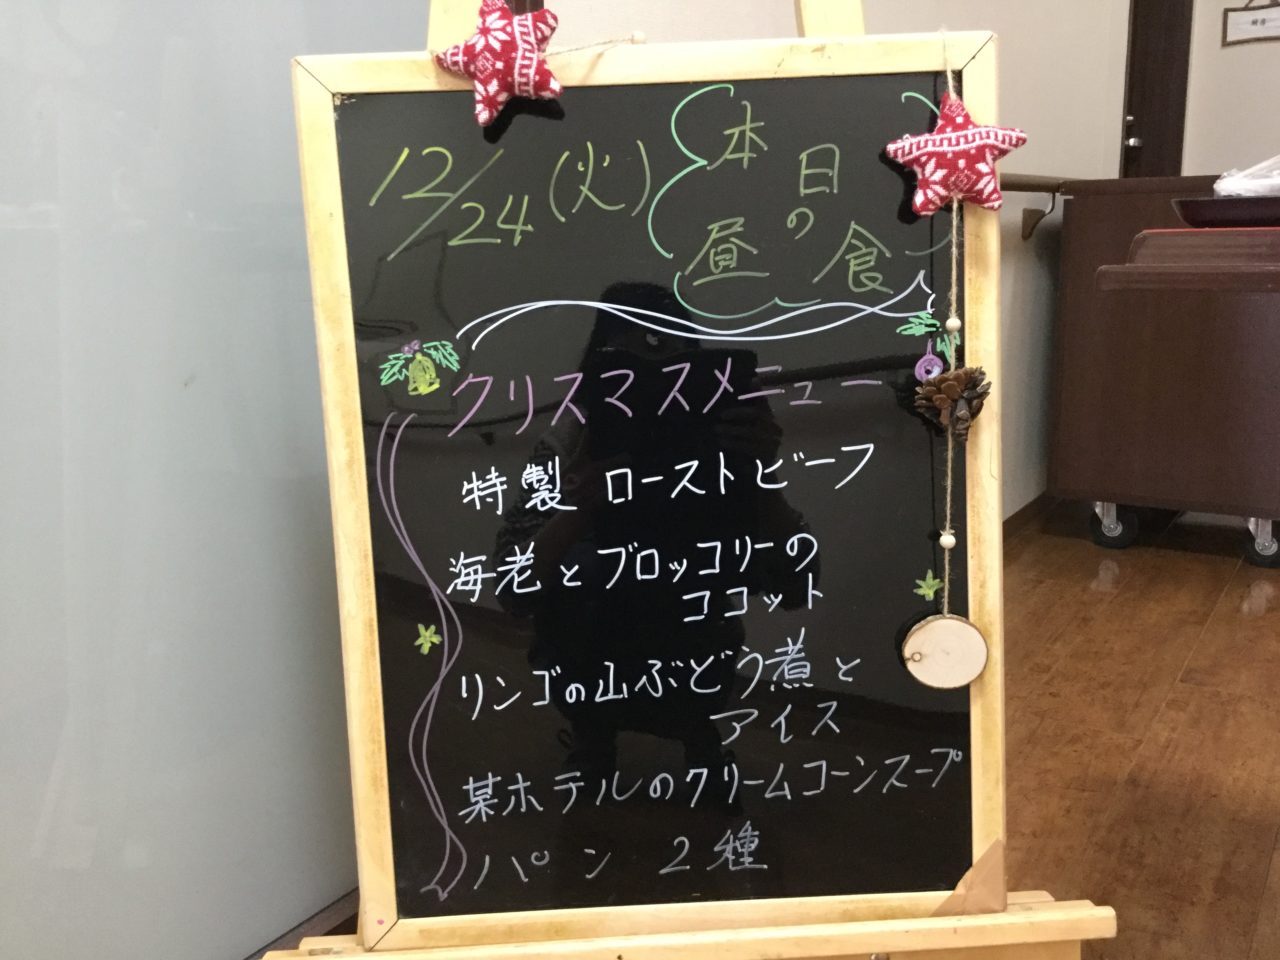 12/24(火)
本日の
昼食
クリスマスメニュー
特製 ローストビーフ
海老とブロッコリーの
ココット
リンゴの山ぶどう煮と
アイス
某ホテルのクリームコーンスープ
パン 2種